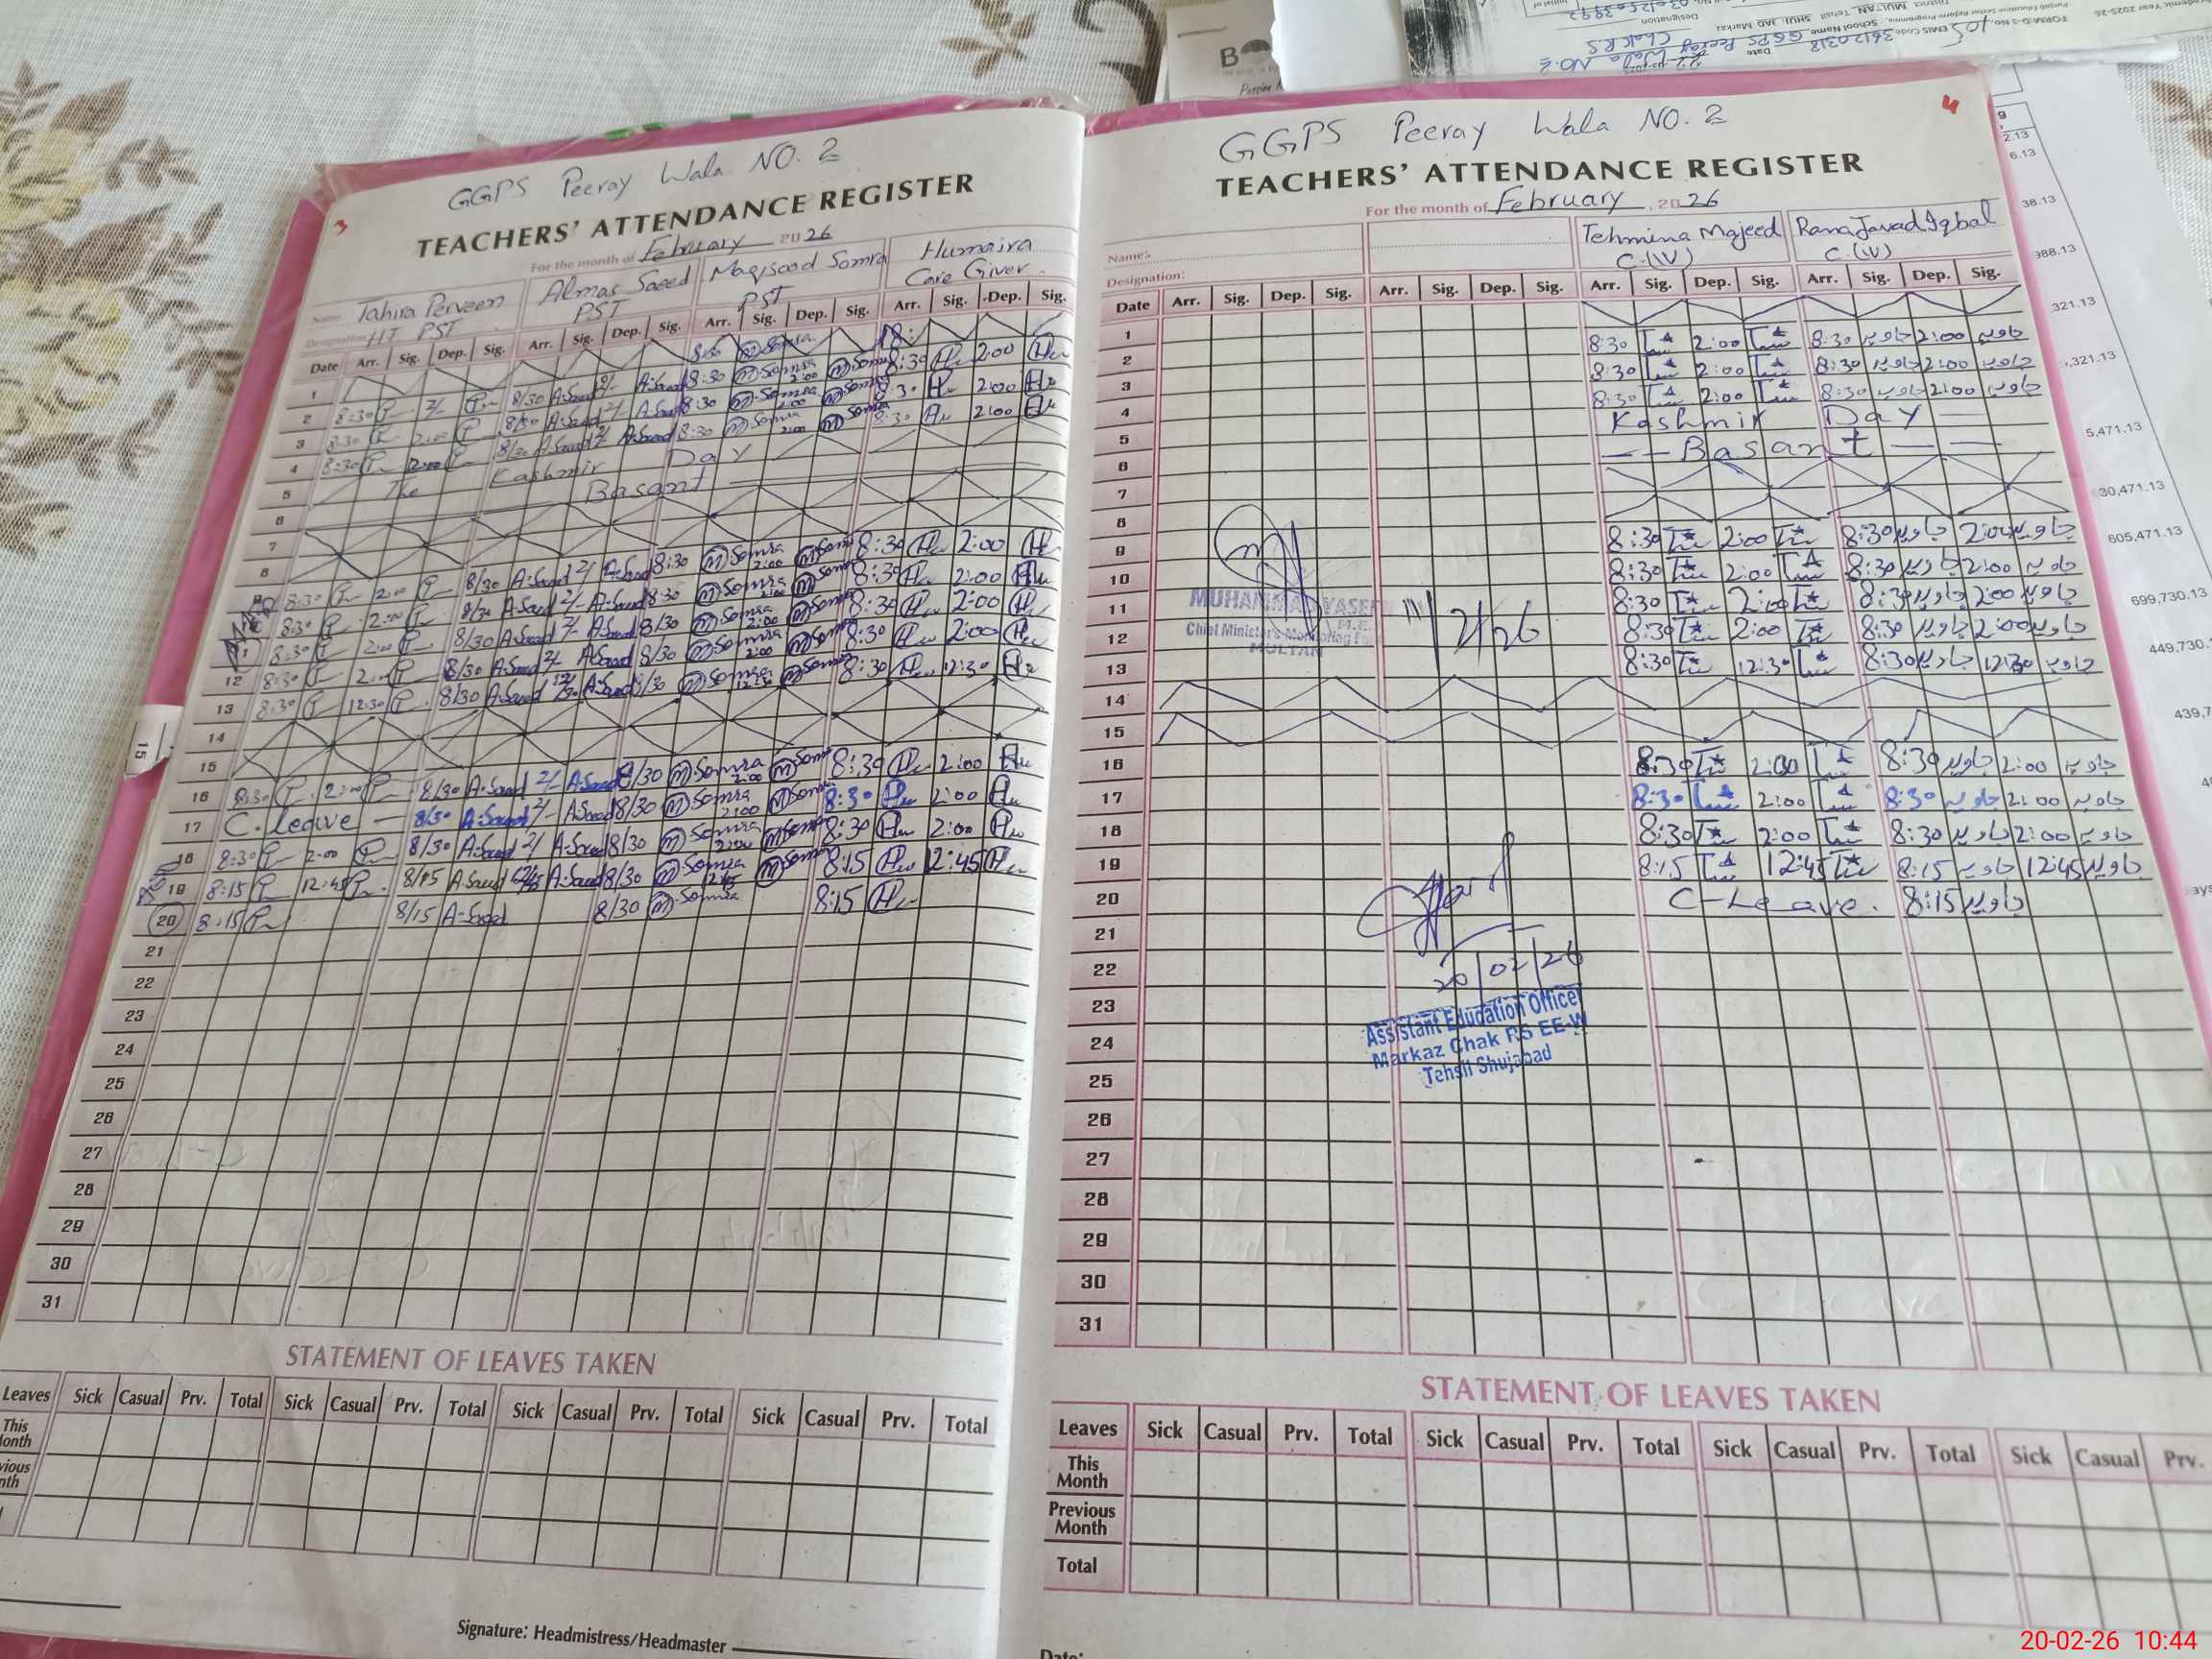 GGPS Peeray Wala NO. 2
3
TEACHERS' ATTENDANCE REGISTER
For the month of February 2026
Name: Tahira Perveen Almas Saeed Maqsood Somra Humaira
Designation: HT PST PST PST Care Giver
Date Arr. Sig. Dep. Sig. Arr. Sig. Dep. Sig. Arr. Sig. Dep. Sig. Arr. Sig. Dep. Sig.
1 8:30 M.Somra
2 8:30 2/ 8/30 A.Saeed 2/- A.Saeed 8:30 M.Somra 2:00 M.Somra 8:30 Hu 2:00 Hu
3 8:30 2:00 8/30 A.Saeed 2/- A.Saeed 8:30 M.Somra 2:00 M.Somra 8:30 Hu 2:00 Hu
4 8:30 2:00 8/30 A.Saeed 2/- A.Saeed 8:30 M.Somra 2:00 M.Somra 8:30 Hu 2:00 Hu
5 The Kashmir Day
6 Basant
7
8
8:30 2:00 8/30 A.Saeed 2/ A.Saeed 8:30 M.Somra 2:00 M.Somra 8:30 Hu 2:00 Hu
8:30 2:00 8/30 A.Saeed 2/- A.Saeed 8:30 M.Somra 2:00 M.Somra 8:30 Hu 2:00 Hu
11 8:30 2:00 8/30 A.Saeed 2/- A.Saeed 8/30 M.Somra 2:00 M.Somra 8:30 Hu 2:00 Hu
12 8:30 2:00 8/30 A.Saeed 2/- A.Saeed 8/30 M.Somra 2:00 M.Somra 8:30 Hu 2:00 Hu
13 8:30 12:30 8/30 A.Saeed 12/30 A.Saeed 8/30 M.Somra 12:30 M.Somra 8:30 Hu 12:30 Hu
14
15
16 8:30 2:00 8/30 A.Saeed 2/- A.Saeed 8/30 M.Somra 2:00 M.Somra 8:30 Hu 2:00 Hu
17 C.leave — 8/30 A.Saeed 2/- A.Saeed 8/30 M.Somra 2:00 M.Somra 8:30 Hu 2:00 Hu
18 8:30 2:00 8/30 A.Saeed 2/ A.Saeed 8/30 M.Somra 2:00 M.Somra 8:30 Hu 2:00 Hu
19 8:15 12:45 8/15 A.Saeed 12/45 A.Saeed 8/30 M.Somra M.Somra 8:15 Hu 12:45 Hu
20 8:15 8/15 A.Saeed 8/30 M.Somra 8:15 Hu
21
22
23
24
25
26
27
28
29
30
31
STATEMENT OF LEAVES TAKEN
Leaves Sick Casual Prv. Total Sick Casual Prv. Total Sick Casual Prv. Total Sick Casual Prv. Total
This
Signature: Headmistress/Headmaster
15
GGPS Peeray Wala NO. 2
4
TEACHERS' ATTENDANCE REGISTER
For the month of February, 2026
Name: Tehmina Majeed Rana Javad Iqbal
Designation: C.(IV) C.(IV)
Date Arr. Sig. Dep. Sig. Arr. Sig. Dep. Sig. Arr. Sig. Dep. Sig. Arr. Sig. Dep. Sig.
1
2 8:30 2:00 8:30 جاوید 2:00 جاوید
3 8:30 2:00 8:30 جاوید 2:00 جاوید
4 8:30 2:00 8:30 جاوید 2:00 جاوید
5 Kashmir Day
6 Basant
7
8
9 8:30 2:00 8:30 جاوید 2:00 جاوید
10 8:30 2:00 8:30 جاوید 2:00 جاوید
11 8:30 2:00 8:30 جاوید 2:00 جاوید
12 8:30 2:00 8:30 جاوید 2:00 جاوید
13 8:30 12:30 8:30 جاوید 12:30 جاوید
14
15
16 8:30 2:00 8:30 جاوید 2:00 جاوید
17 8:30 2:00 8:30 جاوید 2:00 جاوید
18 8:30 2:00 8:30 جاوید 2:00 جاوید
19 8:15 12:45 8:15 جاوید 12:45 جاوید
20 C-Leave. 8:15 جاوید
21
22
23
24
25
26
27
28
29
30
31
MUHAMMAD YASEEN
M.E.
Chief Minister's Monitoring Force
MULTAN
11/2/26
20/02/26
Assistant Education Officer
Markaz Chak RS EE-W
Tehsil Shujabad
STATEMENT OF LEAVES TAKEN
Leaves Sick Casual Prv. Total Sick Casual Prv. Total Sick Casual Prv. Total Sick Casual Prv.
This Month
Previous Month
Total
Date:
EMIS Code 36120318 School Name GGPS Peeray Wala NO.2
Chak RS
2.13
6.13
38.13
388.13
321.13
,321.13
5,471.13
30,471.13
605,471.13
699,730.13
449,730.
439,7
20-02-26 10:44